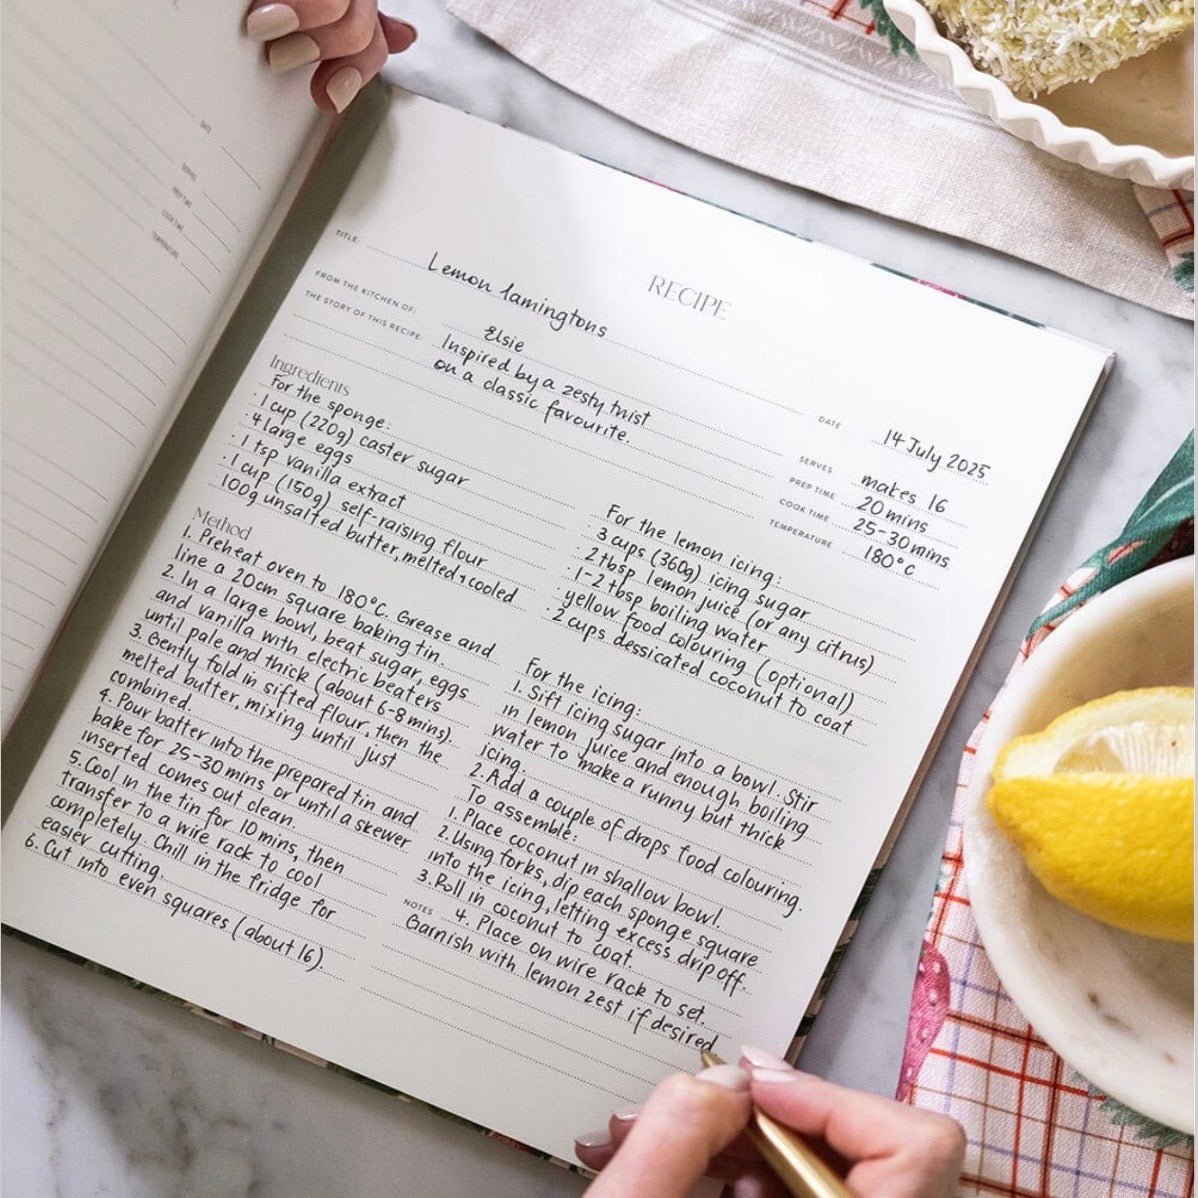 DATE
SERVES
PREP TIME
COOK TIME
TEMPERATURE
RECIPE
TITLE: Lemon lamingtons
FROM THE KITCHEN OF: Elsie
THE STORY OF THIS RECIPE: Inspired by a zesty twist
on a classic favourite.
DATE 14 July 2025
SERVES makes 16
PREP TIME 20 mins
COOK TIME 25-30 mins
TEMPERATURE 180°C
Ingredients
For the sponge:
· 1 cup (220g) caster sugar
· 4 large eggs
· 1 tsp vanilla extract
· 1 cup (150g) self-raising flour
100g unsalted butter, melted & cooled
For the lemon icing:
· 3 cups (360g) icing sugar
· 2 tbsp lemon juice (or any citrus)
· 1-2 tbsp boiling water
· yellow food colouring (optional)
· 2 cups dessicated coconut to coat
Method
1. Preheat oven to 180°C. Grease and
line a 20cm square baking tin.
2. In a large bowl, beat sugar, eggs
and vanilla with electric beaters
until pale and thick (about 6-8 mins).
3. Gently fold in sifted flour, then the
melted butter, mixing until just
combined.
4. Pour batter into the prepared tin and
bake for 25-30 mins or until a skewer
inserted comes out clean.
5. Cool in the tin for 10 mins, then
transfer to a wire rack to cool
completely. Chill in the fridge for
easier cutting.
6. Cut into even squares (about 16).
For the icing:
1. Sift icing sugar into a bowl. Stir
in lemon juice and enough boiling
water to make a runny but thick
icing.
2. Add a couple of drops food colouring.
To assemble:
1. Place coconut in shallow bowl.
2. Using forks, dip each sponge square
into the icing, letting excess drip off.
3. Roll in coconut to coat.
NOTES 4. Place on wire rack to set.
Garnish with lemon zest if desired